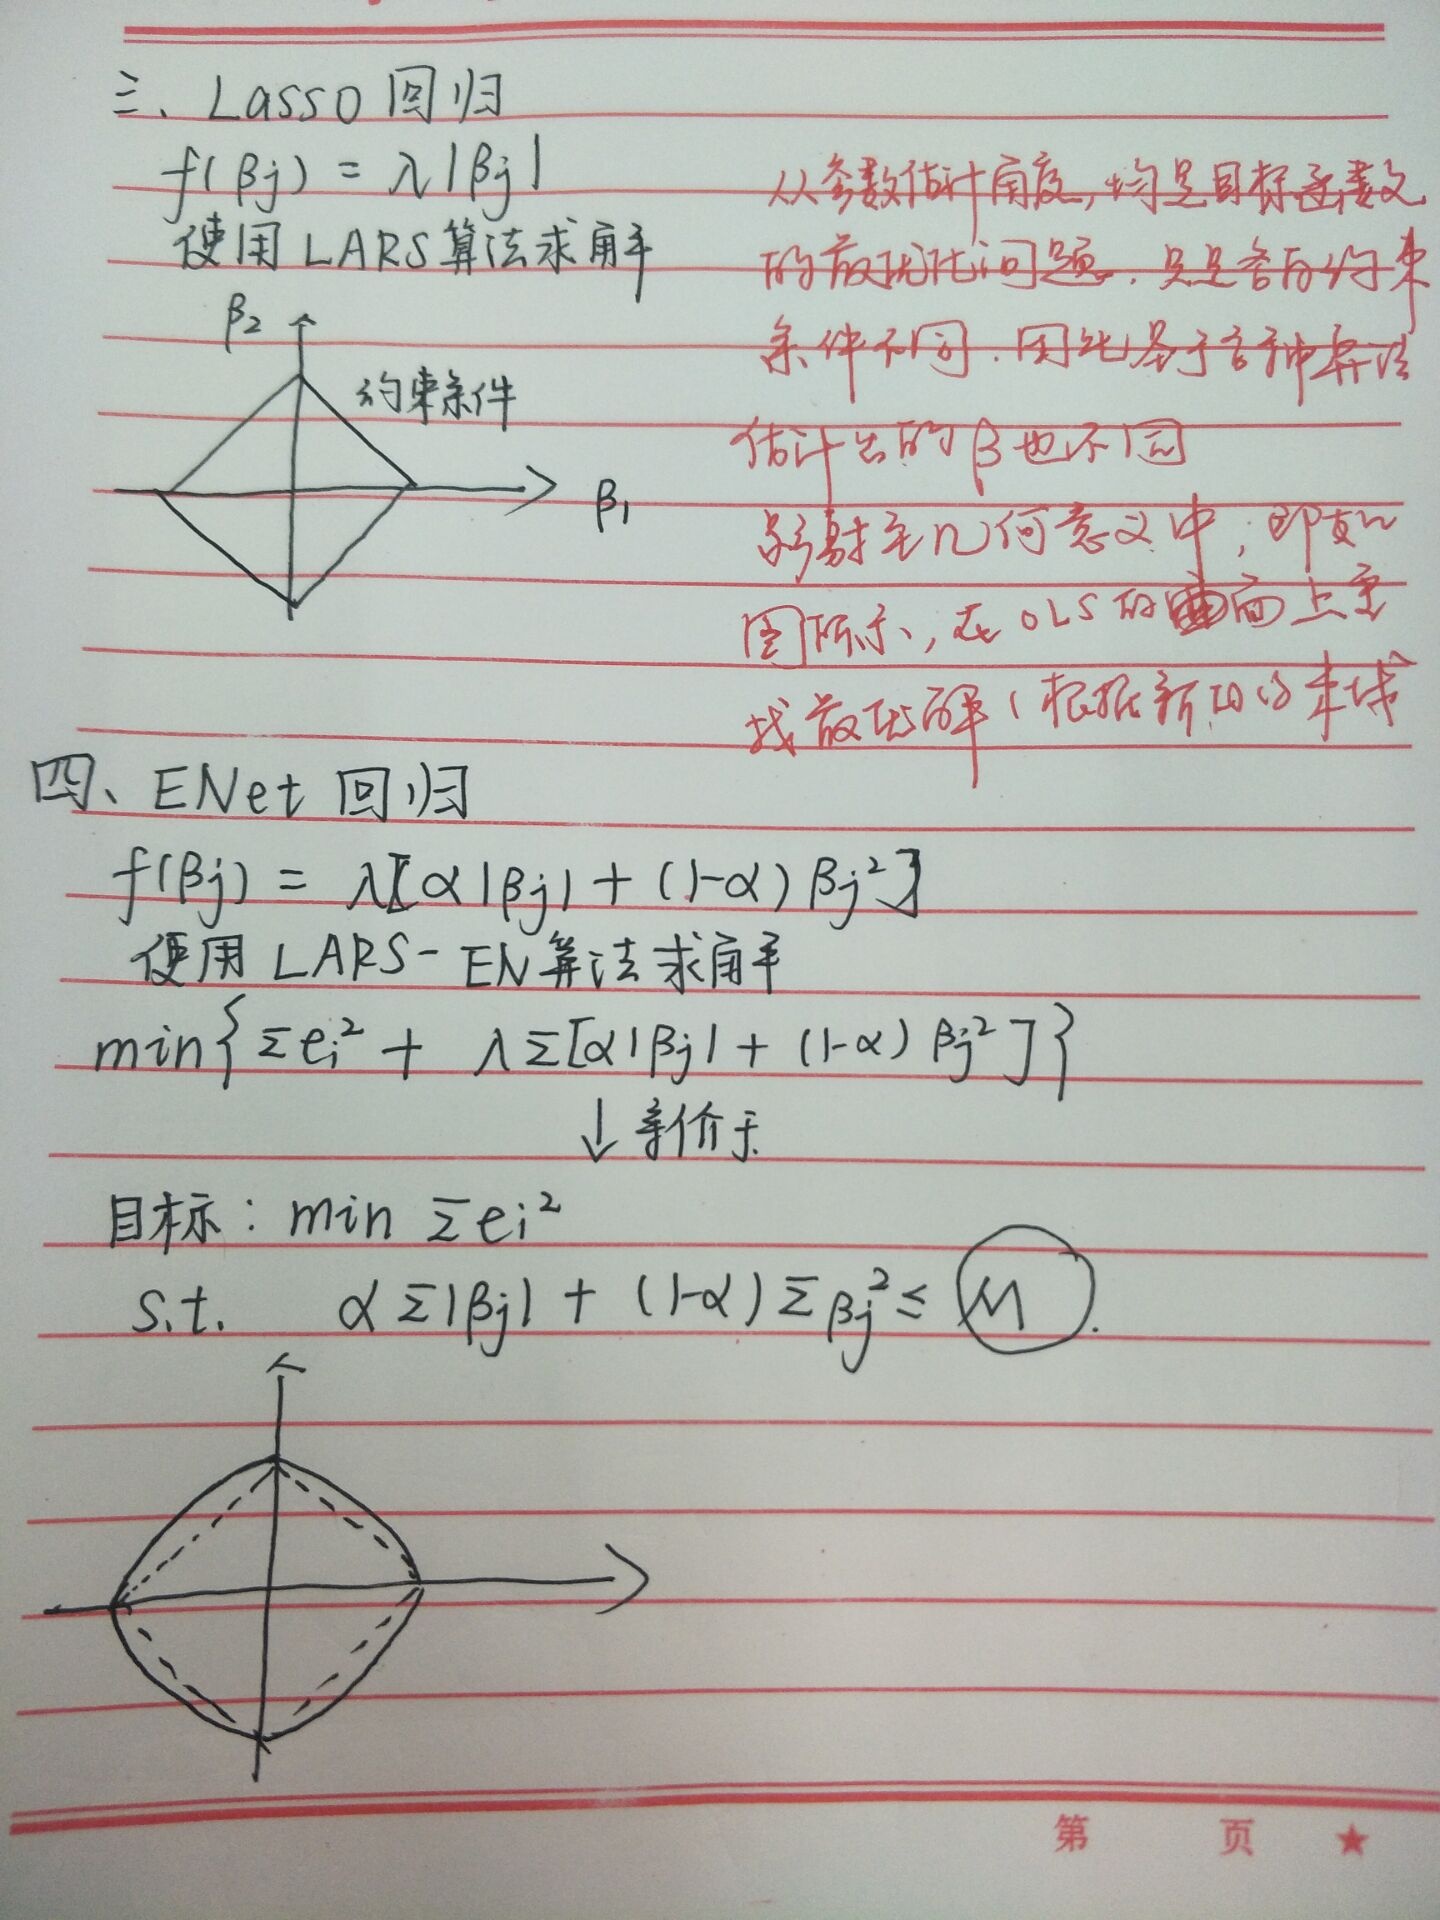 三、Lasso 回归
f(βj) = λ|βj|
使用 LARS 算法求解
β2
约束条件
β1
从参数估计角度,均是目标函数
的最优化问题.只是各自约束
条件不同.因此基于各种算法
估计出的β也不同
影射至几何意义中,即如
图所示,在OLS的曲面上
找最优解(根据新的约束域
四、ENet 回归
f(βj) = λ[α|βj| + (1-α)βj²]
使用 LARS-EN算法求解
min{Σei² + λΣ[α|βj| + (1-α)βj²]}
↓等价于
目标: min Σei²
s.t. αΣ|βj| + (1-α)Σβj² ≤ M.
第 页 ★